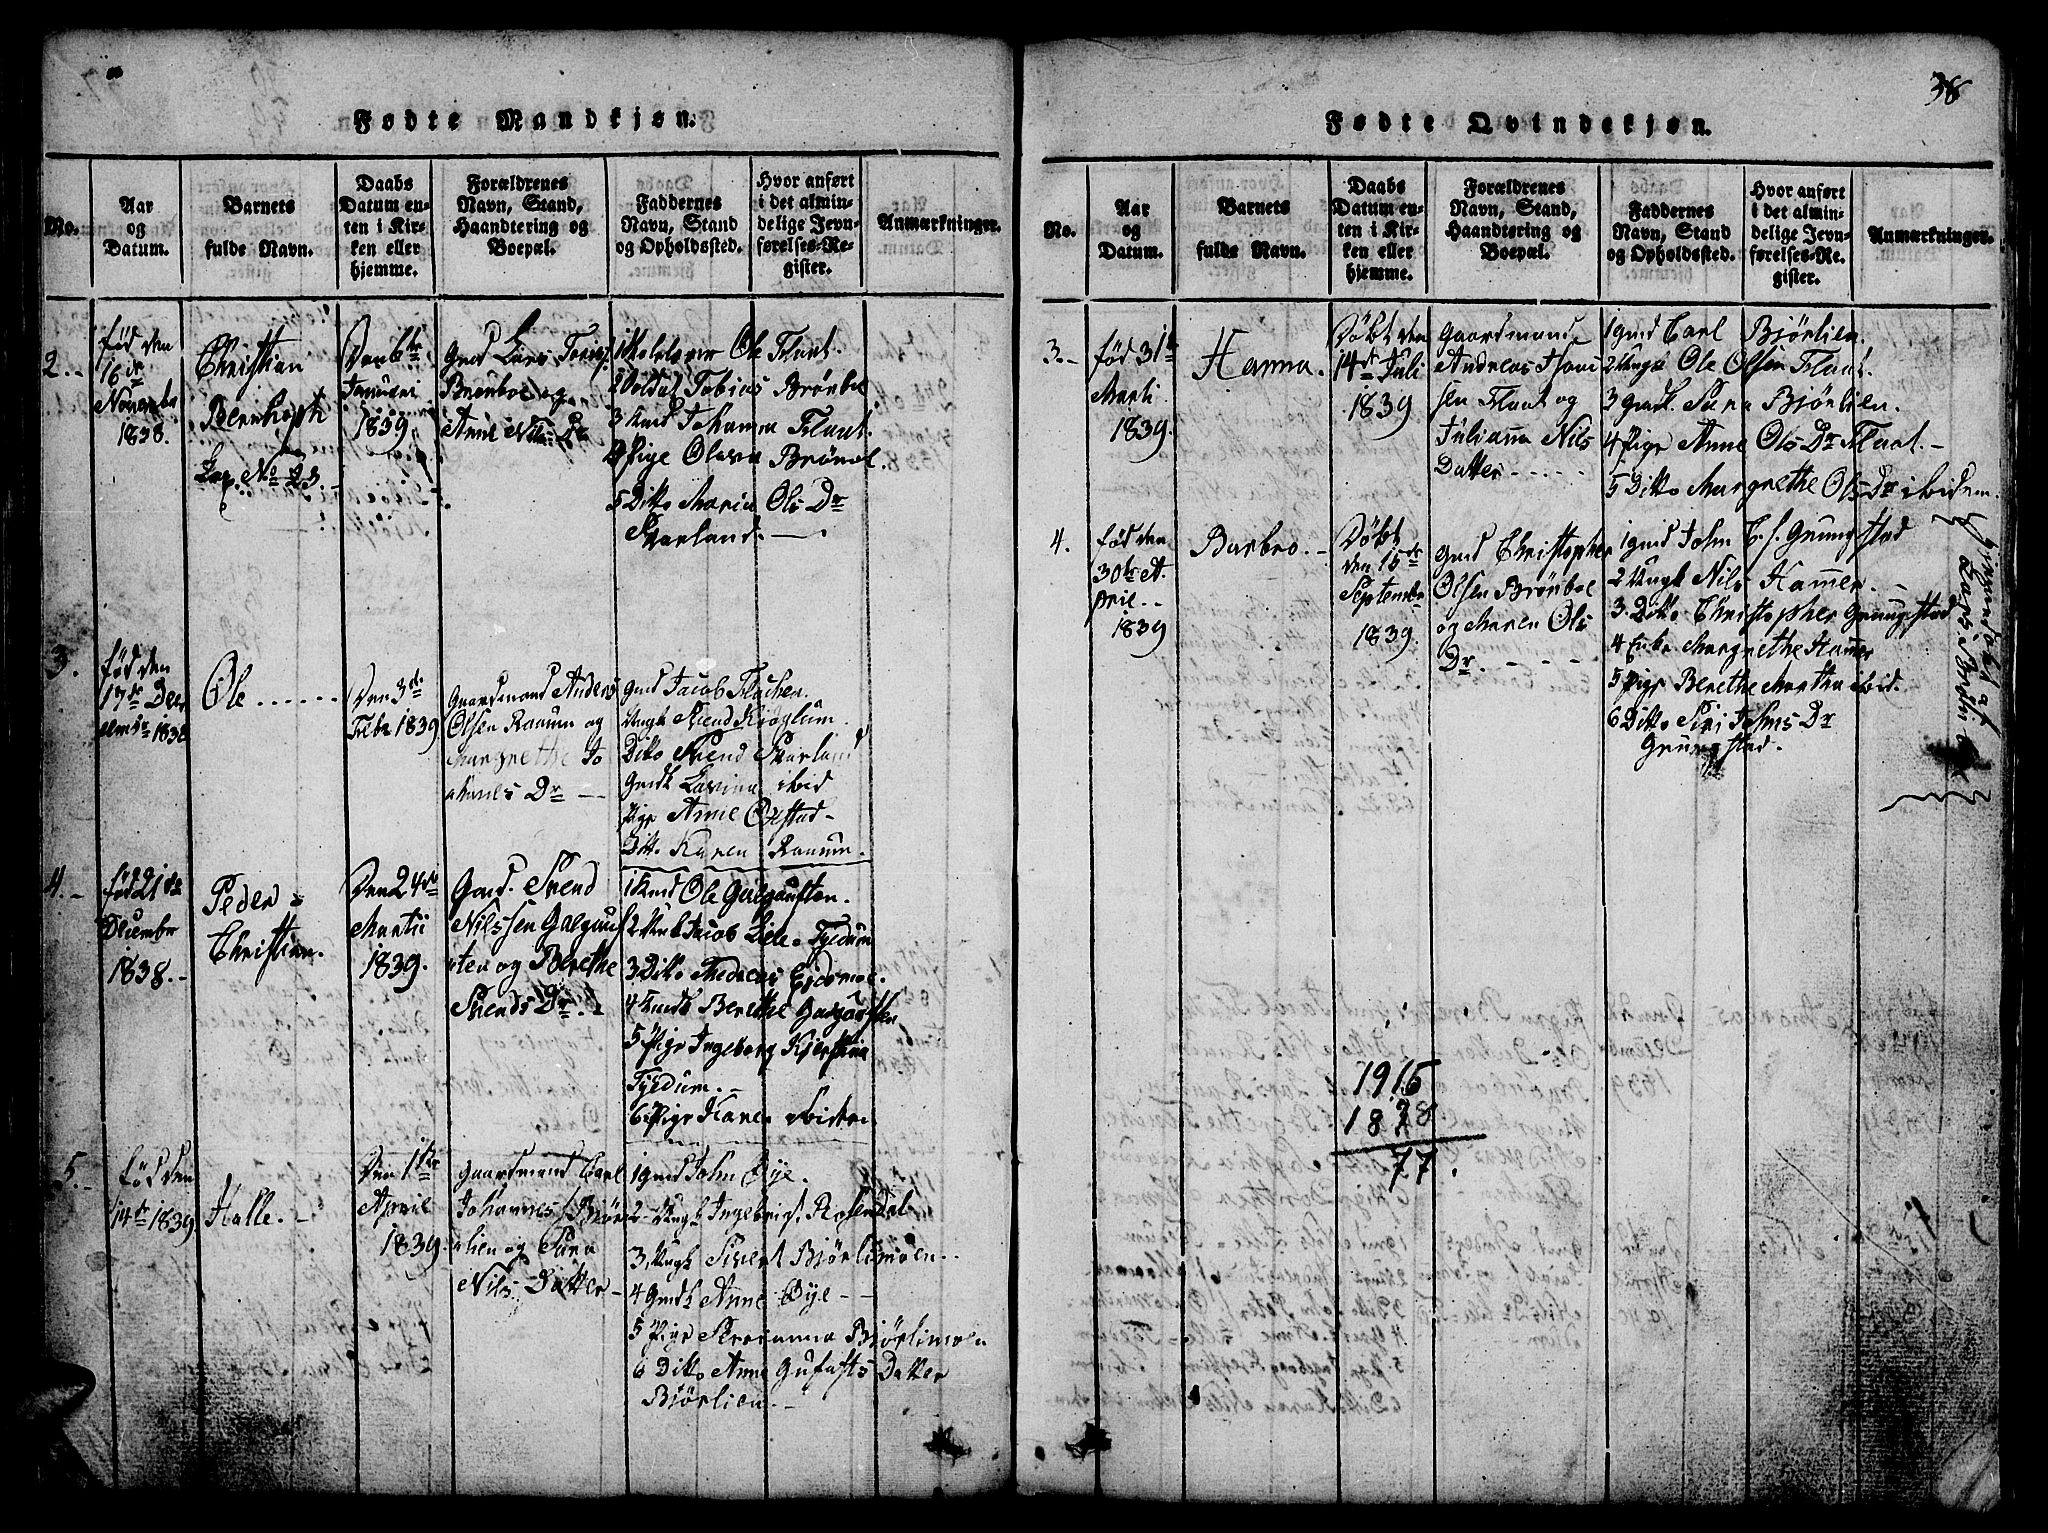 38
Fødte Mandkjøn.
No.
Aar og Datum.
Barnets fulde Navn.
Daabs Datum enten i Kirken eller hjemme.
Forældrenes Navn, Stand, Haandtering og Boepæl.
Faddernes Navn, Stand og Opholdssted.
Hvor anført i det almindelige Jevnførelses-Register.
Anmærkninger.
2.
født den
16de
Novembr
1838.
Christian
Bernhoph
No 23.
Den 6te
Januari
1839
Gmd Lars
og
Anne Nils Dr
Ole Flaat.
2 Tobias Brønboe
3 Johanna Flaat.
4 Pige Olava Brønbol.
5 Ditto Maria Ols Dr
Skarland.
3.
fød den
17de Dec
1838
Ole
Den 3de
Febr 1839
Gaardmand Anders
Olsen Ranum og
Margrethe Jo
hanes Dr
Gmd Jacob
Ungk Svend Kjøglum.
Ditto Svend Skarland
Gmdk Lavina ibid
Pige Anne Øxstad
Ditto Karen Ranum.
4.
fød 21de
Decembr
1838.
Peder
Christian.
Den 24de
Martii
1839.
Gmd. Svend
Nilssen Galgouf
ten og Berethe
Svends Dr.
1 Gmd Ole Galgouften.
2 Ungk Jacob Tyldum
3 Ditto Andreas
4 Gmdk Berethe Galgouften
5 Pige Ingeborg Kjerstina
Tyldum.
6 Pige Karen ibidem
5.
Fød den
14de 1839
Halle.
Den 1ste
April
1839.
Gaardmand Carl
Johannes. Bjør
lien og Sara
Nils Datter
1 gmd John Øye.
2 Ungk Ingebrigt Rosendal
3 Ungk Sivert Bjørlimoen
4 Gmdk Anne Øye
5 Pige Bjørlimoen
6 Ditto Anne Gufasts Datter
Bjørlien.
Fødte Qvindekjøn.
No.
Aar og Datum.
Barnets fulde Navn.
Daabs Datum enten i Kirken eller hjemme.
Forældrenes Navn, Stand, Haandtering og Boepæl.
Faddernes Navn, Stand og Opholdssted.
Hvor anført i det almindelige Jevnførelses-Register.
Anmærkninger.
3.
fød 31te
Marti
1839.
Hanna.
Døbt den
14de Juli
1839
Gaardmand
Andreas
sen Flaat og
Julianna Nils
Datter
1 gmd Carl Bjørlien.
2 Ungk Ole Olsen Flaat.
3 Gmdk. Sara Bjørlien.
4 Pige Anne Ols Dr Flaat.
5 Ditto Margrethe Ols Dr ibidem.
4.
fød den
30te A
pril
1839
Barbro.
Døbt
den 15de
Septembr
1839.
Gmd Christopher
Olsen Brønboe
og Maren Ols
Dr.
1 gmd John C. S. Grungstad
2 Ungk Nils Hamer.
3 Ditto Christopher Grungstad
4 Enke Margrethe Hamer
5 Pige Berethe Martha ibid.
6 Ditto Siri Johns Dr
Grungstad.
1915
1838
77.